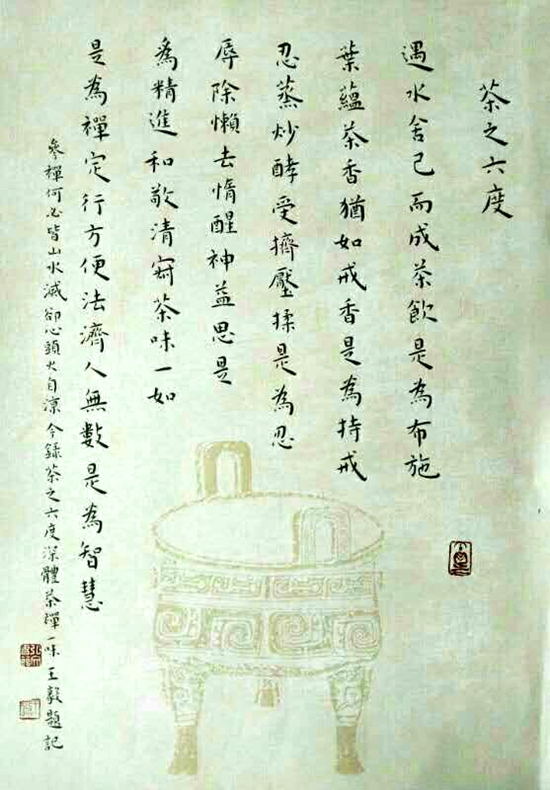 茶之六度
遇水舍己而成茶飲是為布施
葉蘊茶香猶如戒香是為持戒
忍蒸炒酵受擠壓揉是為忍
辱除懶去惰醒神益思是
為精進和敬清寂茶味一如
是為禪定行方便法濟人無數是為智慧
參禪何必皆山水滅卻心頭火自涼今錄茶之六度深體茶禪一味王毅題記